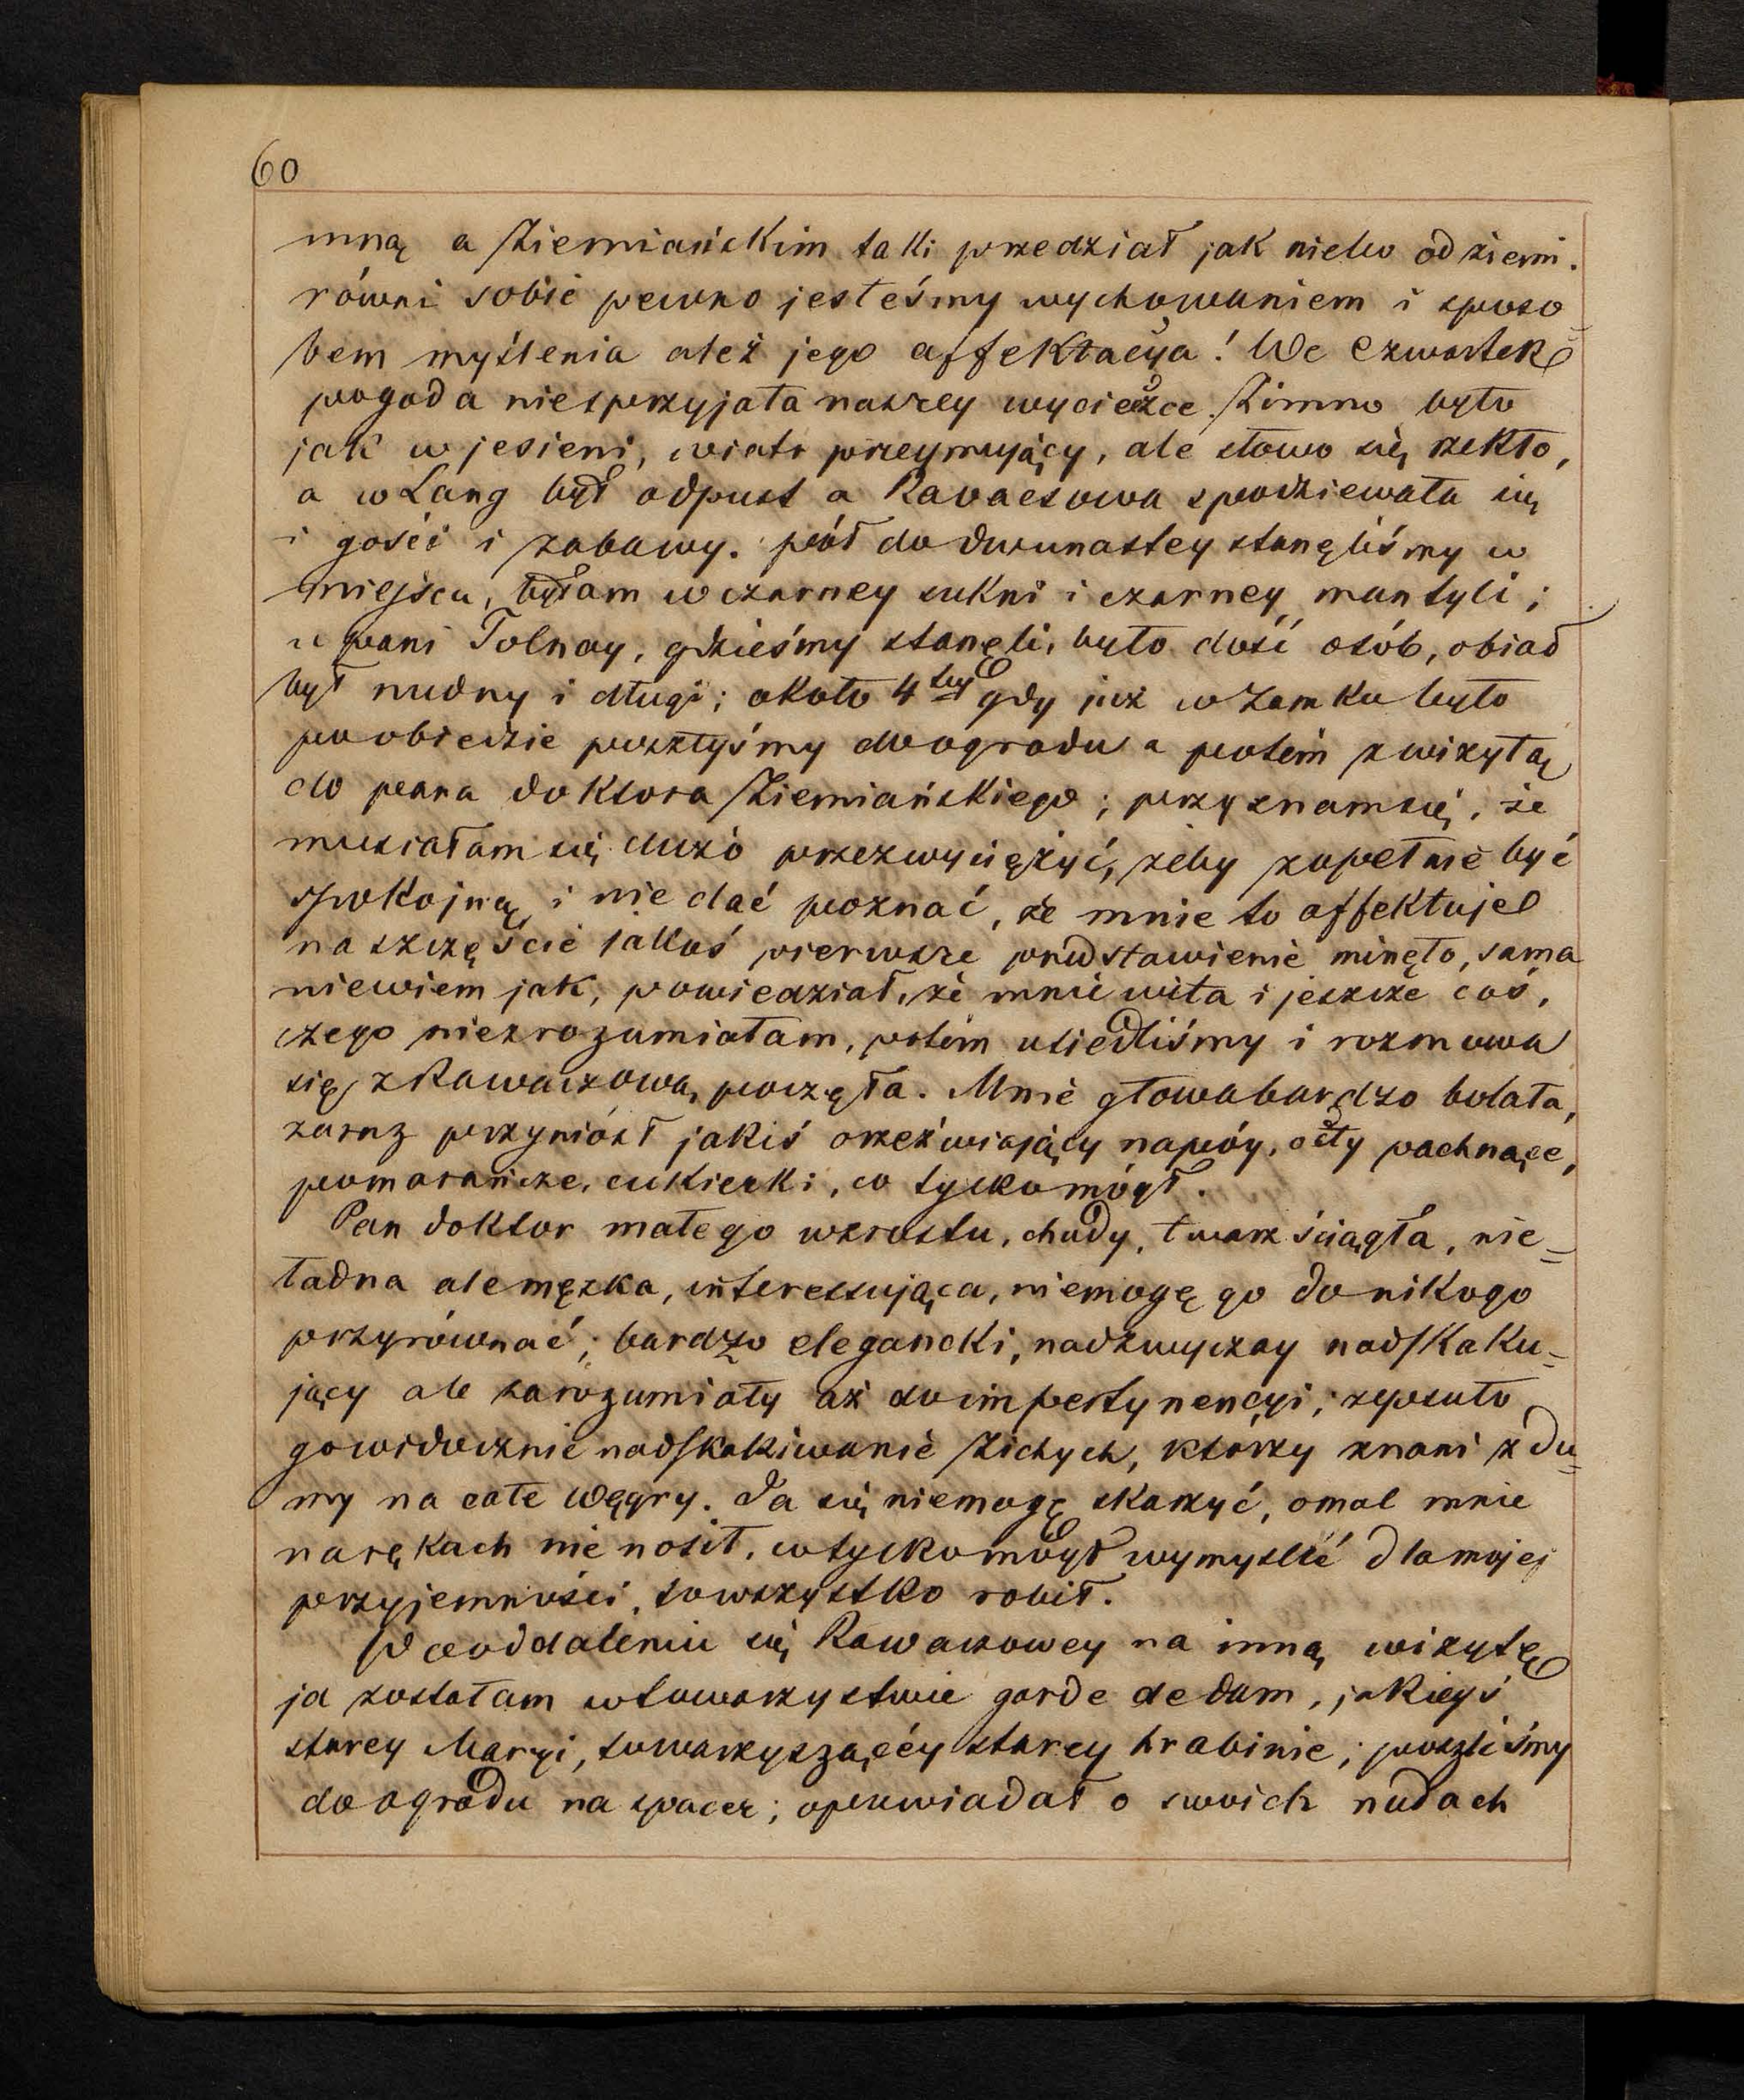 60
mną a Ziemiańskim taki przedział jak niebo od ziemi.
równi sobie pewno jesteśmy wychowaniem i sposo=
bem myślenia ależ jego affektacya! We czwartek
pogoda niesprzyjała naszey wycieczce. Zimno było
jak w jesieni, wiatr przeymujący, ale słowo się rzekło,
a w Lang był odpust a Ravacsowa spodziewała się
i gości i zabawy. pół do dwunastey stanęliśmy w
miejscu, byłam w czarney sukni i czarney mantyli;
u pani Tolnay, gdzieśmy stanęli, było dość osób, obiad
był nudny i długi; około 4tey gdy już w Zamku było
po obiedzie poszłyśmy do ogrodu a potém z wizytą
do pana doktora Ziemiańskiego; przyznam się, że
musiałam się dużo przezwyciężyć, żeby zupełnie być
spokojną i nie dać poznać, że mnie to affektuje
na szczęście jakoś pierwsze przedstawienie minęło, sama
niewiem jak, powiedział, że mnie wita i jeszcze coś,
czego niezrozumiałam, potém usiedliśmy i rozmowa
się z Rawaczową poczęła. Mnie głowa bardzo bolała,
zaraz przyniósł jakiś orzeźwiający napóy, octy pachnące,
pomarańcze, cukierki, co tylko mógł.
Pan doktor małego wzrostu, chudy, twarz ściągła, nie=
ładna ale męzka, interessująca, niemogę go do nikogo
przyrównać; bardzo elegancki, nadzwyczay nadskaku=
jący ale zarozumiały aż do impertynencyi; zepsuło
go widocznie nadskakiwanie Zichych, którzy znani z du=
my na całe Węgry. Ja się niemogę skarzyć, omal mnie
na rękach nie nosił, co tylko mógł wymyslić dla mojej
przyjemności, to wszystko robił.
Po oddaleniu się Rawaczowey na inną wizytę
ja zostałam w towarzystwie garde de dam, jakieyś
starey Maryi, towarzyszącéy starey hrabinie; poszliśmy
do ogrodu na spacer; opowiadał o swoich nudach